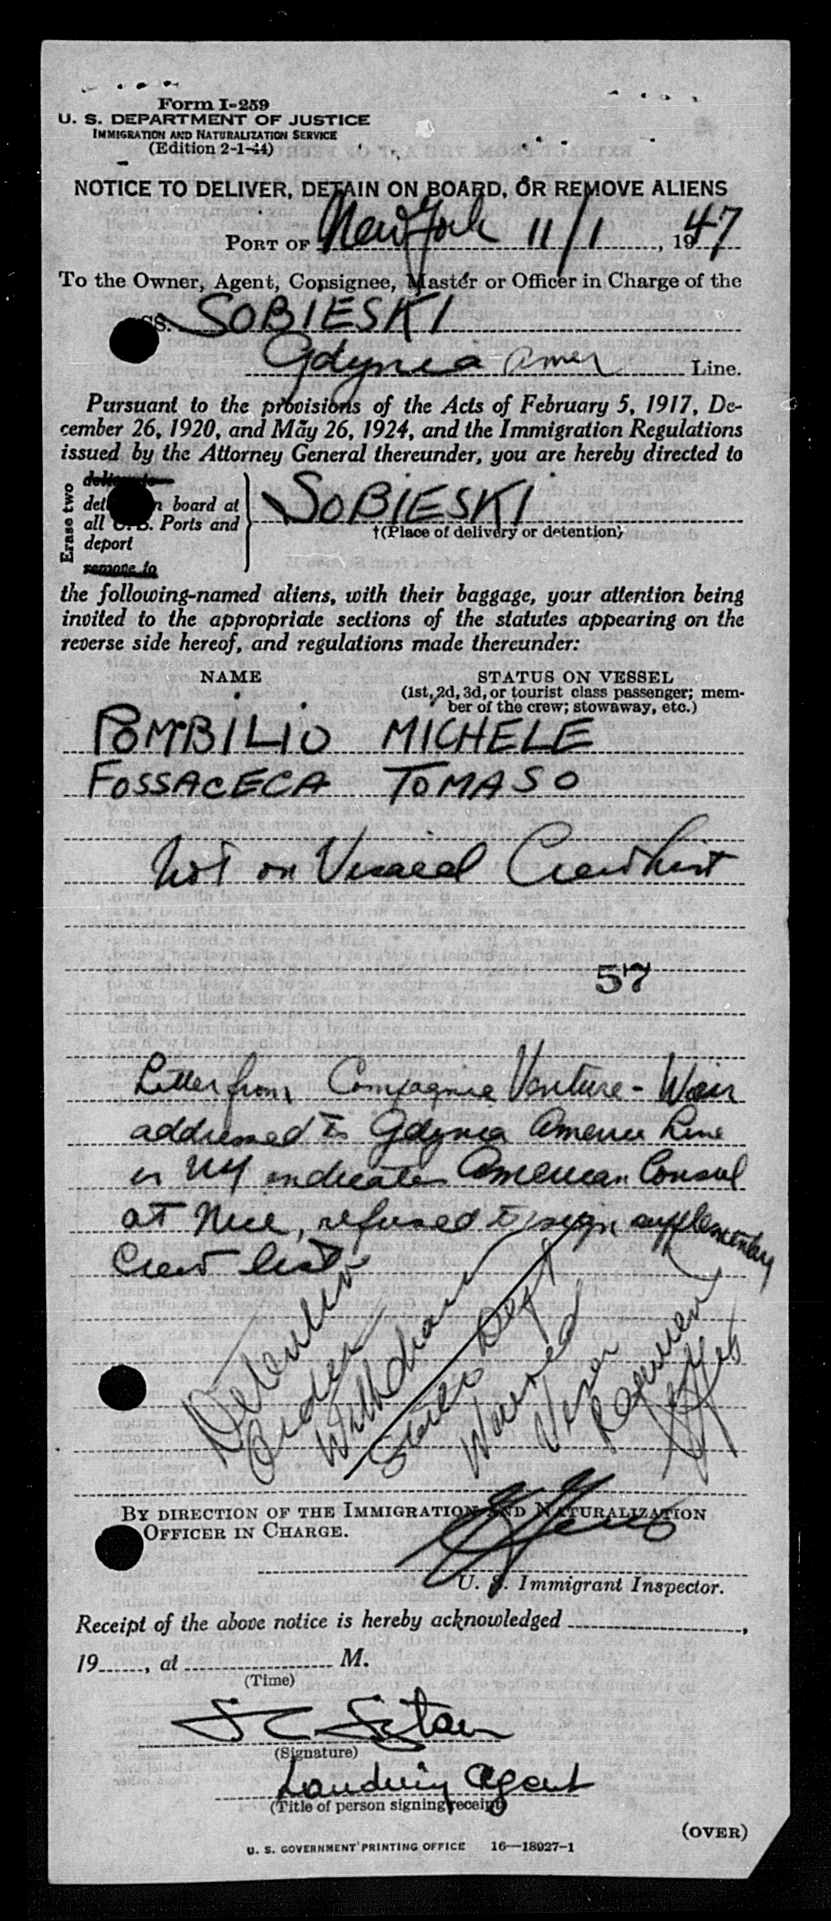 Form I-259
U. S. DEPARTMENT OF JUSTICE
IMMIGRATION AND NATURALIZATION SERVICE
(Edition 2-1-44)
NOTICE TO DELIVER, DETAIN ON BOARD, OR REMOVE ALIENS
PORT OF New York 11/1, 1947
To the Owner, Agent, Consignee, Master or Officer in Charge of the
SS. SOBIESKI
Gdynia Amer Line.
Pursuant to the provisions of the Acts of February 5, 1917, De-
cember 26, 1920, and May 26, 1924, and the Immigration Regulations
issued by the Attorney General thereunder, you are hereby directed to
Erase two
deliver to
detain on board at
all U.S. Ports and
deport
remove to
SOBIESKI
†(Place of delivery or detention)
the following-named aliens, with their baggage, your attention being
invited to the appropriate sections of the statutes appearing on the
reverse side hereof, and regulations made thereunder:
NAME STATUS ON VESSEL
(1st, 2d, 3d, or tourist class passenger; mem-
ber of the crew; stowaway, etc.)
POMBILIO MICHELE
FOSSACECA TOMASO
Not on Visaed Crew List
57
Letter from Compagnie Venture - Weir
addressed to Gdynia America Line
in NY indicates American Consul
at Nice, refused to sign supplementary
Crew list
Detention
Order
Withdrawn
State Dept
Waived
Visa
Requirement
BY DIRECTION OF THE IMMIGRATION AND NATURALIZATION
OFFICER IN CHARGE.
U. S. Immigrant Inspector.
Receipt of the above notice is hereby acknowledged ,
19 , at M.
(Time)
(Signature)
Landing Agent
(Title of person signing receipt)
(OVER)
U. S. GOVERNMENT PRINTING OFFICE 16—18927-1